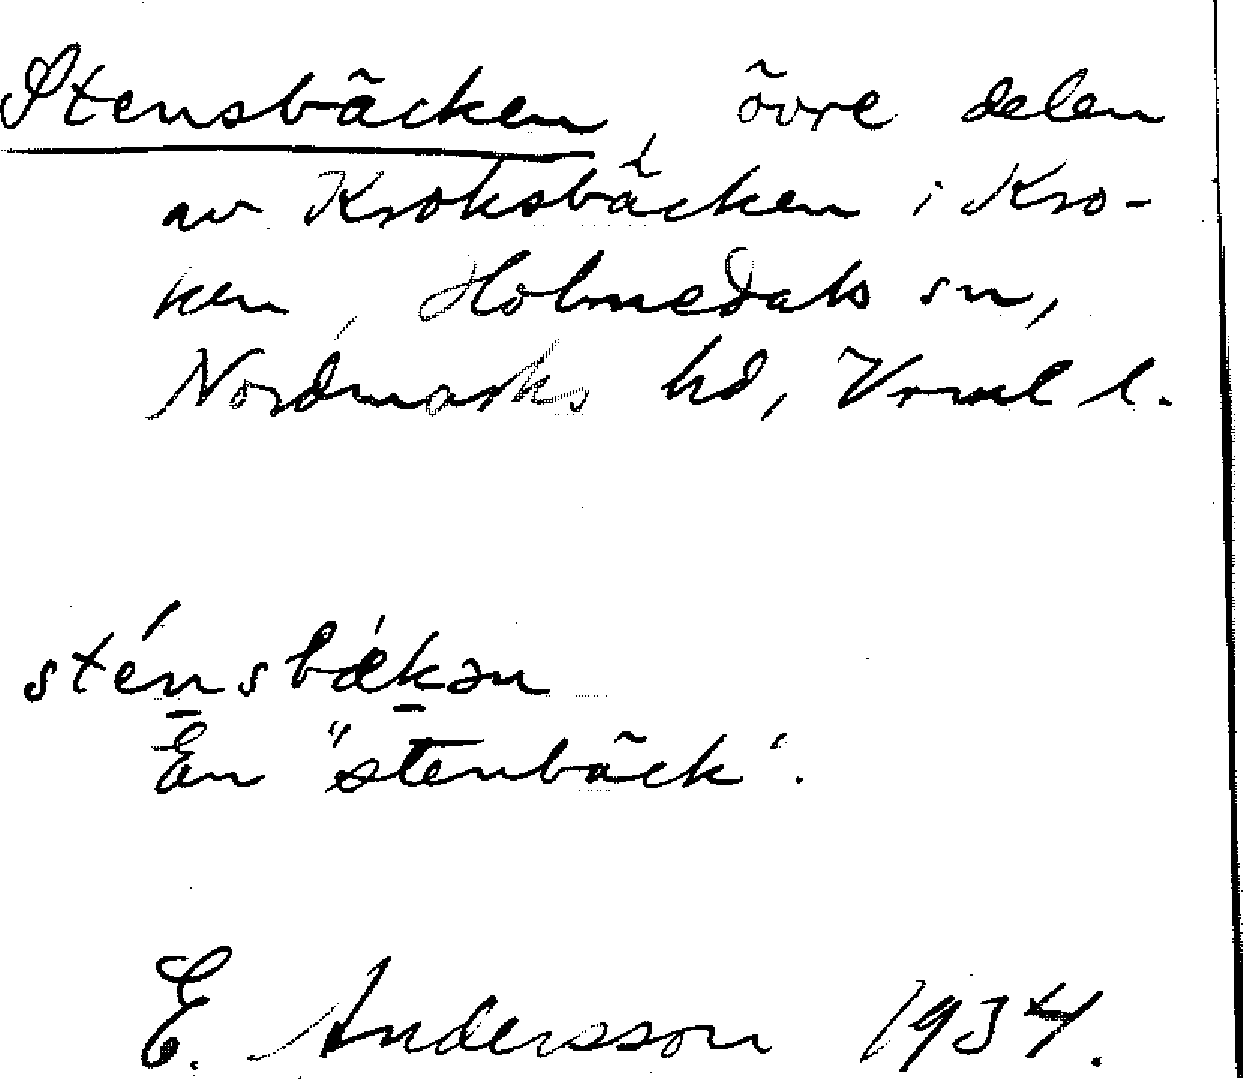 Stensbäcken, övre delen
av Kroksbäcken i Kro-
ken, Holmedals sn,
Nordmarks hd, Vrml l.
sténsbækən
En "stenbäck".
E. Andersson 1934.